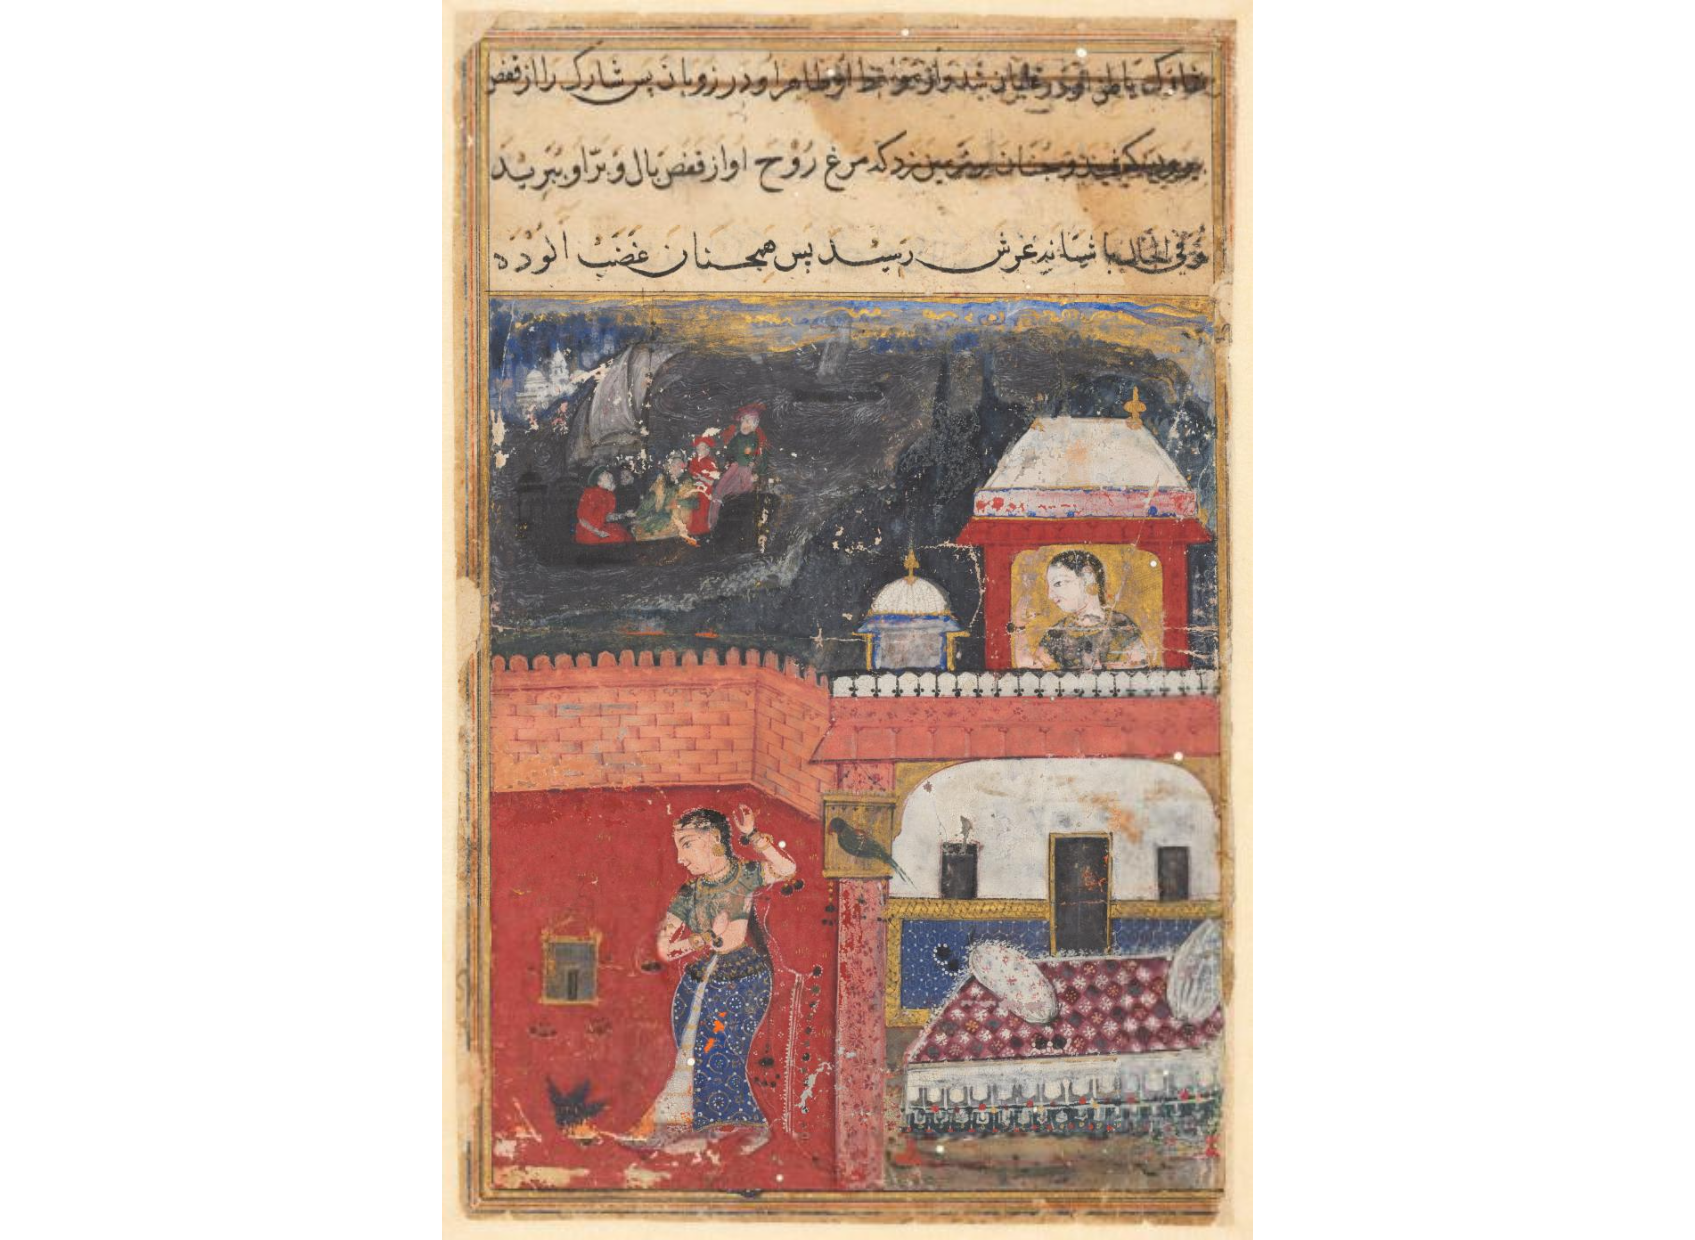 شارک باطن او در غلیان شد واز مواعظ او ظاهر او در زوبان پس شارک را از قفص
بیرون کشید و چنان بر زمین زد که مرغ روح او از قفص بال و پر او بپرید
و فی الحال باشیانه عرش رسید پس همچنان غضب آلوده